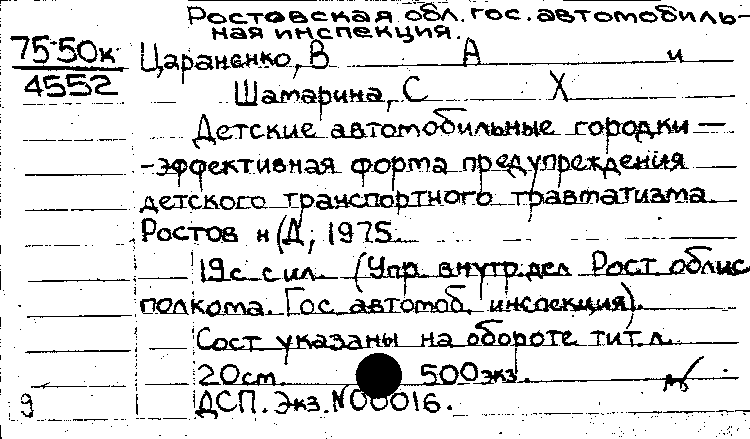 Ростовская обл. гос. автомобиль-
ная инспекция.
75-50к
4552
Цараненко, В А и
Шамарина, С Х
Детские автомобильные городки —
-эффективная форма предупреждения
детского транспортного травматизма.
Ростов н/Д, 1975.
19с. с ил. (Упр. внутр. дел Рост. облис-
полкома. Гос. автомоб. инспекция).
Сост. указаны на обороте тит. л.
20см. 500 экз.
9
ДСП. Экз. №00016.